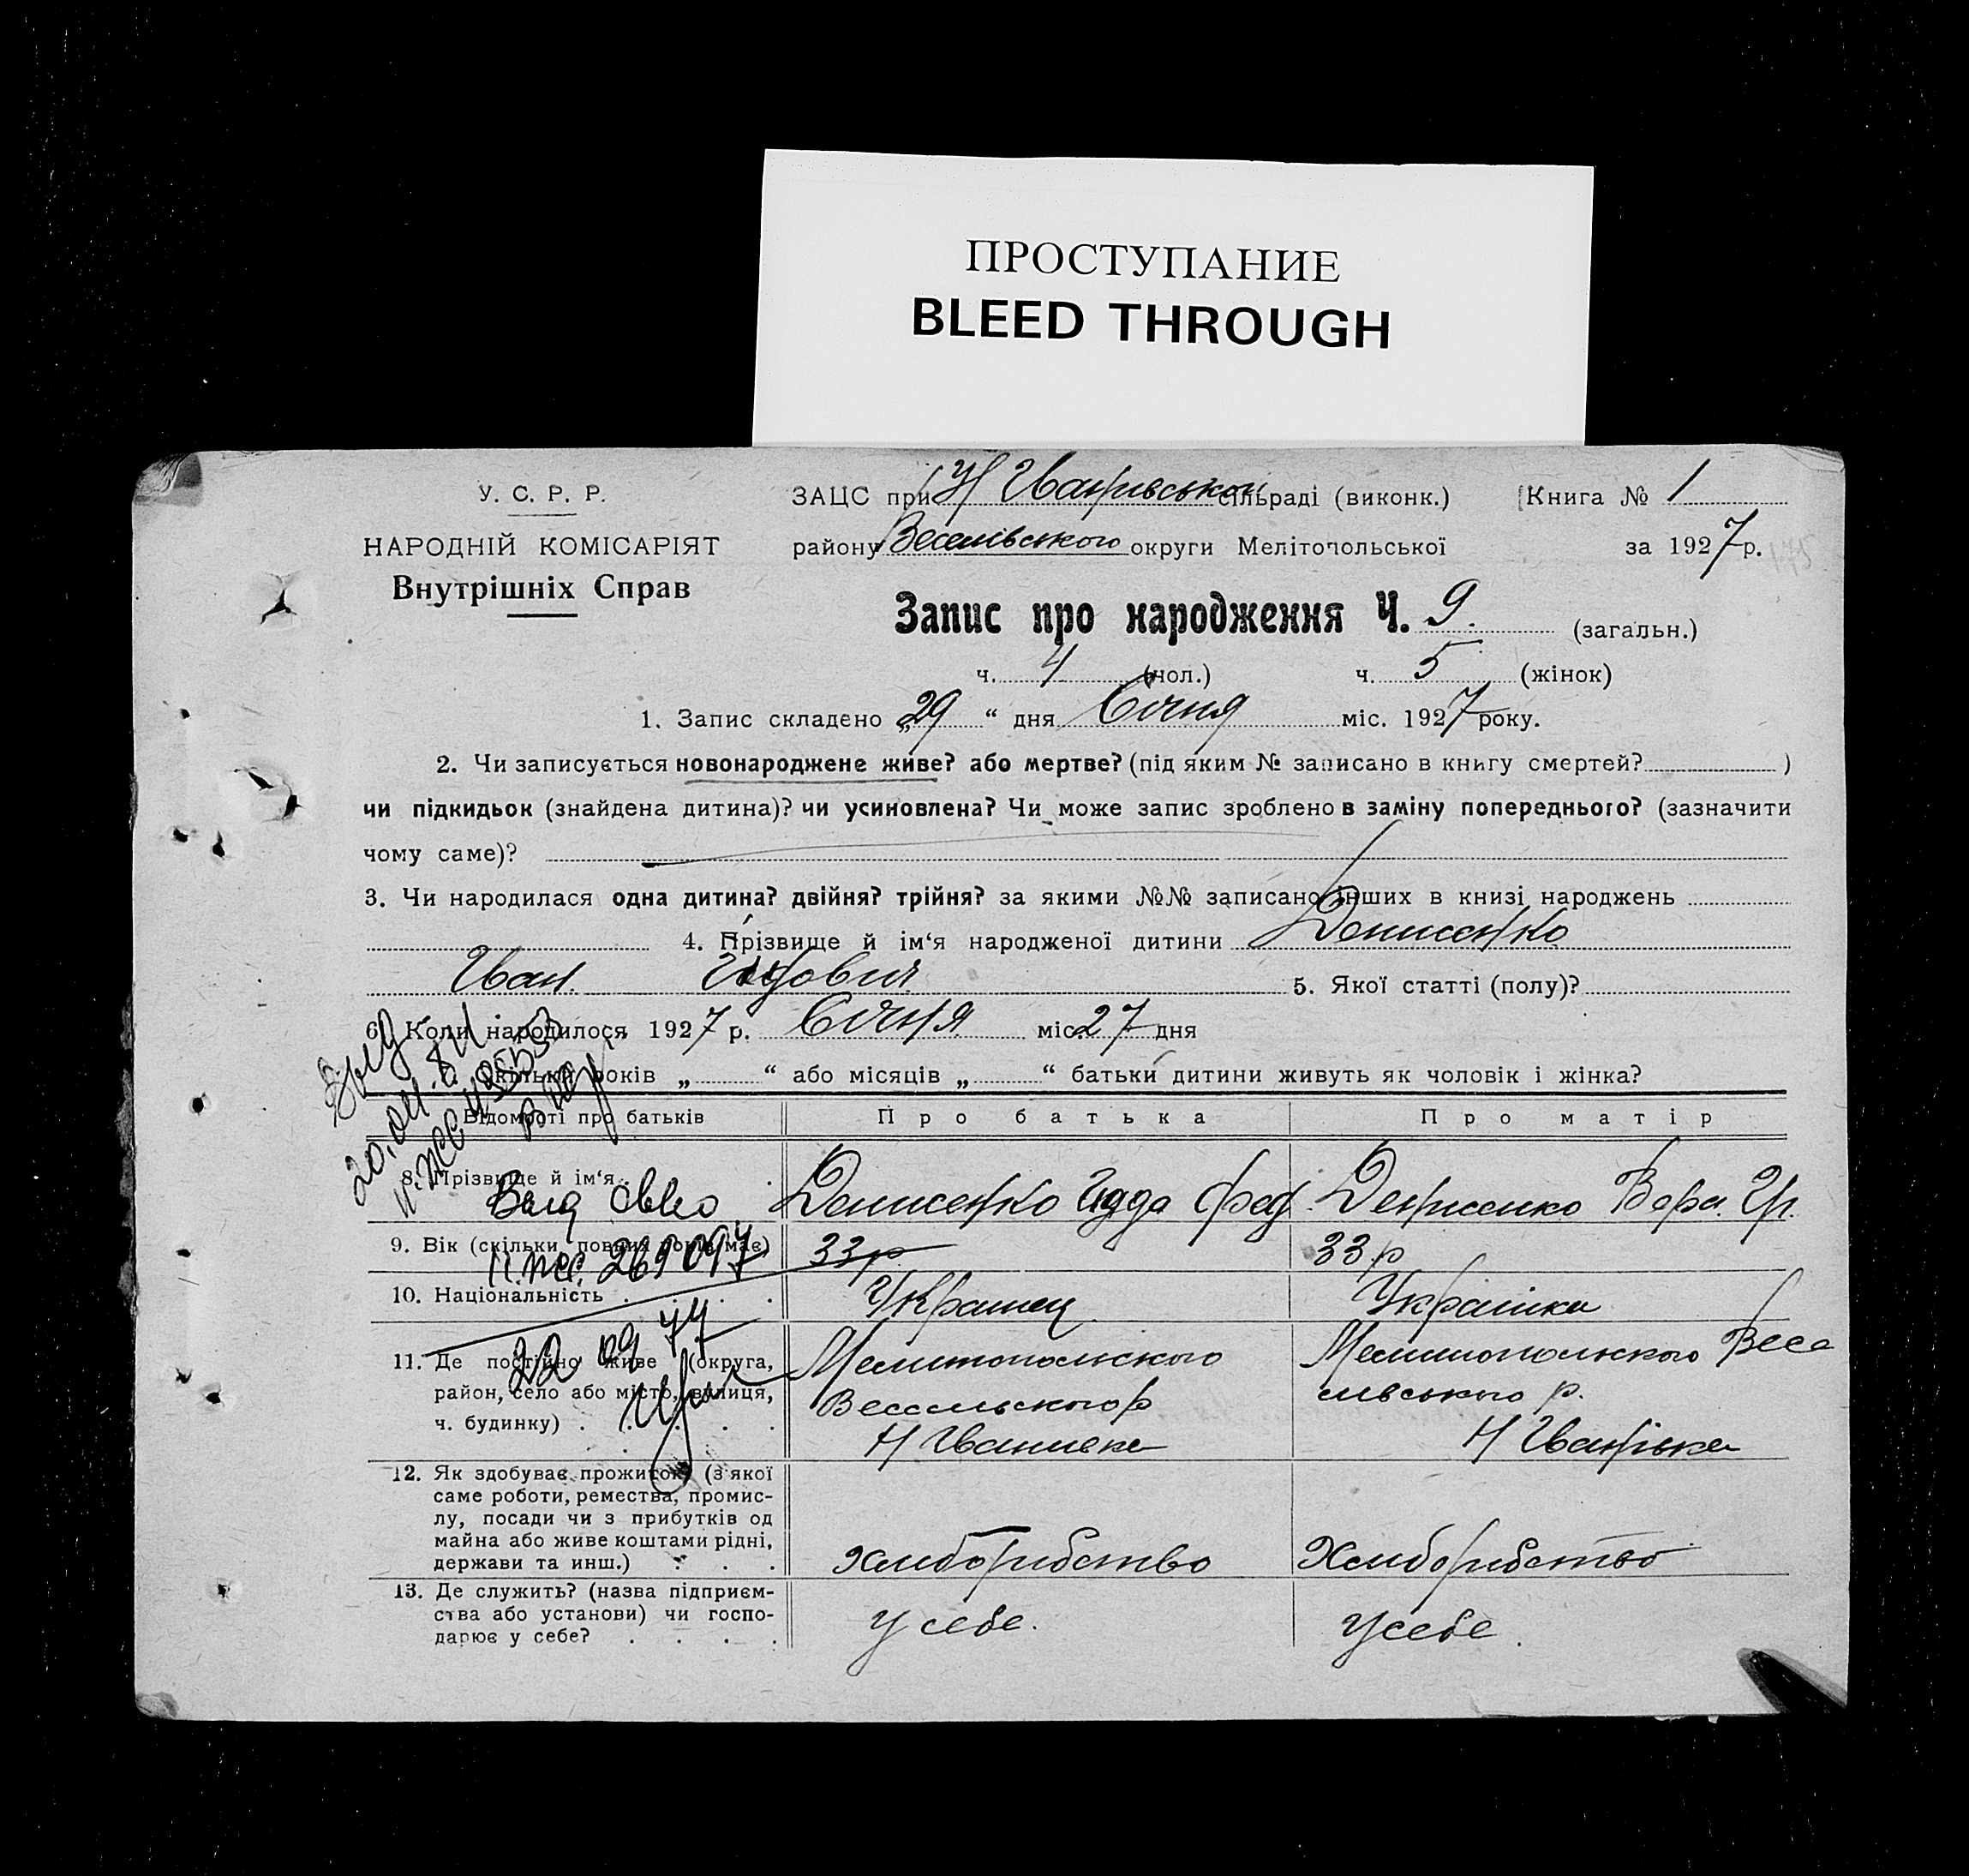 ПРОСТУПАНИЕ
BLEED THROUGH
У. С. Р. Р.
НАРОДНІЙ КОМІСАРІЯТ
Внутрішніх Справ
ЗАЦС при Н Іванівській сільраді (виконк.)
Книга № 1
району Веселівського округи Мелітопольської
за 1927 р.
Запис про народження Ч. 9. (загальн.)
ч. 4 (чол.) ч. 5 (жінок)
1. Запис складено „29“ дня Січня міс. 1927 року.
2. Чи записується новонароджене живе? або мертве? (під яким № записано в книгу смертей? )
чи підкидьок (знайдена дитина)? чи усиновлена? Чи може запис зроблено в заміну попереднього? (зазначити
чому саме)?
3. Чи народилася одна дитина? двійня? трійня? за якими №№ записано інших в книзі народжень
4. Прізвище й ім‘я народженої дитини Денисенко
Иван 5. Якої статті (полу)?
6. Коли народилося 1927 р. Січня міс. 27 дня
скільки років „ “ або місяців „ “ батьки дитини живуть як чоловік і жінка?
Відомості про батьків
Про батька
Про матір
8. Прізвище й ім‘я
Денисенко Федр
Денисенко Вера Гр.
9. Вік (скільки повних років має)
33 р
33 р
269097
10. Національність
Украинец
Українка
22 09 77
11. Де постійно живе (округа,
район, село або місто, вулиця,
ч. будинку)
Мелитопольского
Весельского р
Н Ивановка
Мелитопольского Весе
лівського р.
Н Іванівка
12. Як здобуває прожиток (з якої
саме роботи, ремества, промис-
лу, посади чи з прибутків од
майна або живе коштами рідні,
держави та инш.)
Хлиборибство
Хлиборибство
13. Де служить? (назва підприєм-
ства або установи) чи госпо-
дарює у себе?
у себе.
у себе.